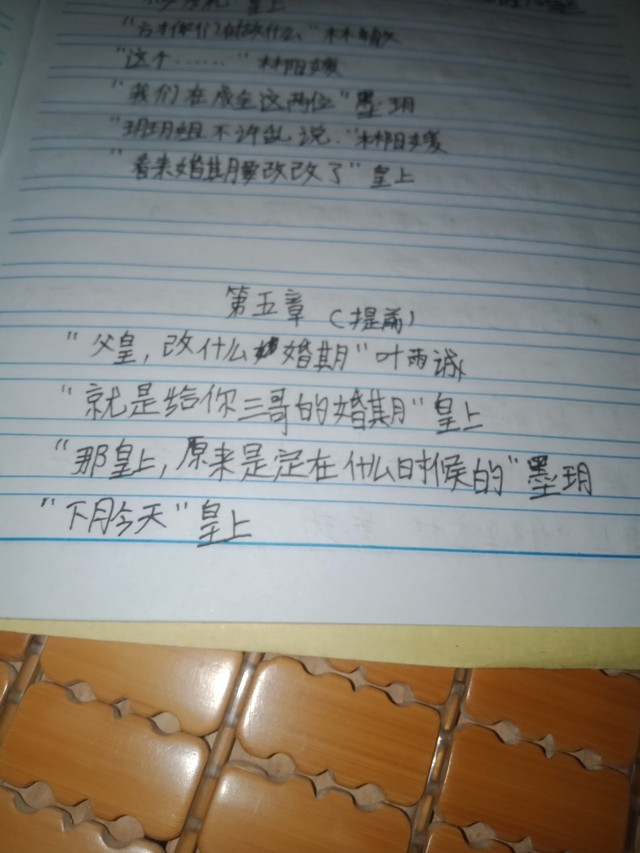 皇上
"方才你们在说什么"
"这个……"林阳媛
"我们在成全这两位"墨玥
"玥玥姐不许乱说."林阳媛
"看来婚期要改改了"皇上
第五章 (提前)
"父皇,改什么婚期"叶雨诚
"就是给你三哥的婚期"皇上
"那皇上,原来是定在什么时候的"墨玥
"下月今天"皇上